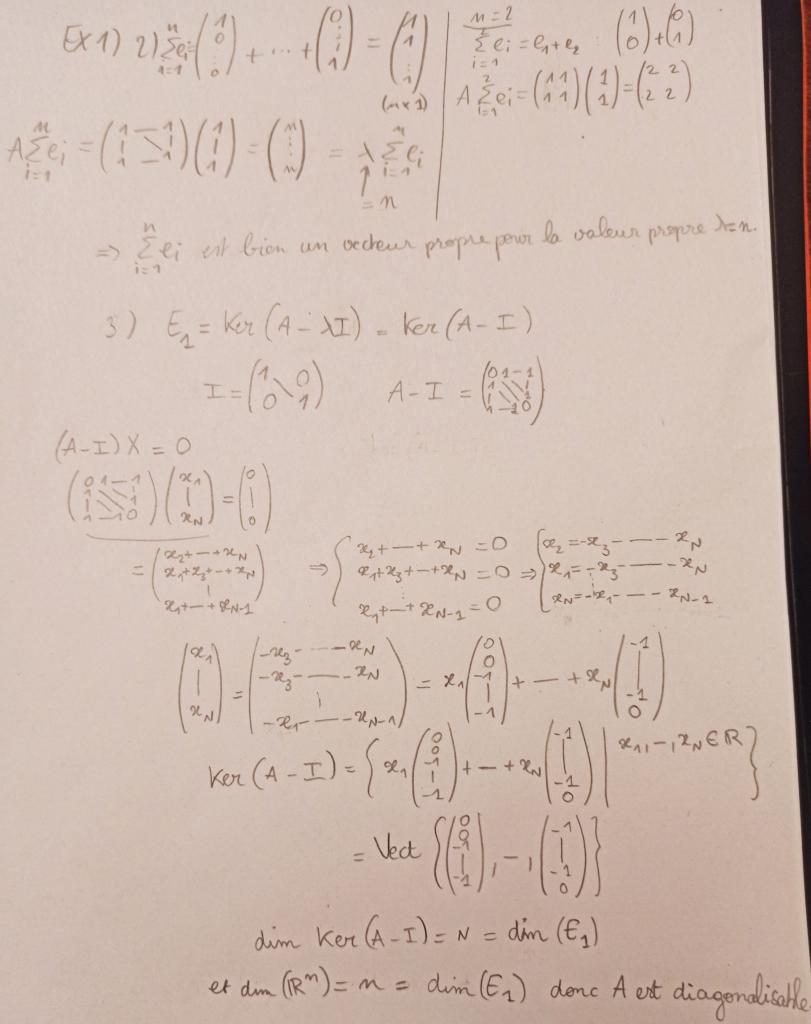 EX 1) 2) \sum_{i=1}^{n} e_i = \begin{pmatrix} 1 \\ 0 \\ \vdots \\ 0 \end{pmatrix} + \cdots + \begin{pmatrix} 0 \\ \vdots \\ 1 \end{pmatrix} = \begin{pmatrix} 1 \\ 1 \\ \vdots \\ 1 \end{pmatrix} (n×1)
A \sum_{i=1}^{n} e_i = \begin{pmatrix} 1 & - & 1 \\ | & \diagdown & | \\ 1 & & 1 \end{pmatrix} \begin{pmatrix} 1 \\ | \\ 1 \end{pmatrix} = \begin{pmatrix} n \\ \vdots \\ n \end{pmatrix} = λ \sum_{i=1}^{n} e_i
↑
= n
n = 2
\sum_{i=1}^{2} e_i = e_1 + e_2 \begin{pmatrix} 1 \\ 0 \end{pmatrix} + \begin{pmatrix} 0 \\ 1 \end{pmatrix}
A \sum_{i=1}^{2} e_i = \begin{pmatrix} 1 & 1 \\ 1 & 1 \end{pmatrix} \begin{pmatrix} 1 \\ 1 \end{pmatrix} = \begin{pmatrix} 2 & 2 \\ 2 & 2 \end{pmatrix}
⇒ \sum_{i=1}^{n} e_i est bien un vecteur propre pour la valeur propre λ=n.
3) E_1 = Ker (A - λI) = Ker (A - I)
I = \begin{pmatrix} 1 & & 0 \\ & \diagdown & \\ 0 & & 1 \end{pmatrix} A - I = \begin{pmatrix} 0 & 1 & - & 1 \\ 1 & \diagdown & \diagdown & | \\ | & \diagdown & \diagdown & 1 \\ 1 & - & 1 & 0 \end{pmatrix}
(A - I) X = 0
\begin{pmatrix} 0 & 1 & - & 1 \\ 1 & \diagdown & \diagdown & | \\ | & \diagdown & \diagdown & 1 \\ 1 & - & 1 & 0 \end{pmatrix} \begin{pmatrix} x_1 \\ | \\ x_N \end{pmatrix} = \begin{pmatrix} 0 \\ | \\ 0 \end{pmatrix}
= \begin{pmatrix} x_2 + - + x_N \\ x_1 + x_3 + - + x_N \\ | \\ x_1 + - + x_{N-1} \end{pmatrix} ⇒ \begin{cases} x_2 + - + x_N = 0 \\ x_1 + x_3 + - + x_N = 0 \\ \vdots \\ x_1 + - + x_{N-1} = 0 \end{cases} ⇒ \begin{cases} x_2 = -x_3 - - - x_N \\ x_1 = -x_3 - - x_N \\ \vdots \\ x_N = -x_1 - - - x_{N-1} \end{cases}
\begin{pmatrix} x_1 \\ | \\ x_N \end{pmatrix} = \begin{pmatrix} -x_3 - \cdots - x_N \\ -x_3 - - - x_N \\ | \\ -x_1 - - - x_{N-1} \end{pmatrix} = x_1 \begin{pmatrix} 0 \\ 0 \\ -1 \\ | \\ -1 \end{pmatrix} + - + x_N \begin{pmatrix} -1 \\ | \\ -1 \\ 0 \end{pmatrix}
Ker (A - I) = \left\{ x_1 \begin{pmatrix} 0 \\ 0 \\ -1 \\ | \\ -1 \end{pmatrix} + - + x_N \begin{pmatrix} -1 \\ | \\ -1 \\ 0 \end{pmatrix} \middle| x_1, -, x_N ∈ ℝ \right\}
= Vect \left\{ \begin{pmatrix} 0 \\ 0 \\ -1 \\ | \\ -1 \end{pmatrix}, -, \begin{pmatrix} -1 \\ | \\ -1 \\ 0 \end{pmatrix} \right\}
dim Ker (A - I) = N = dim (E_1)
et dim (ℝ^n) = n = dim (E_1) donc A est diagonalisable